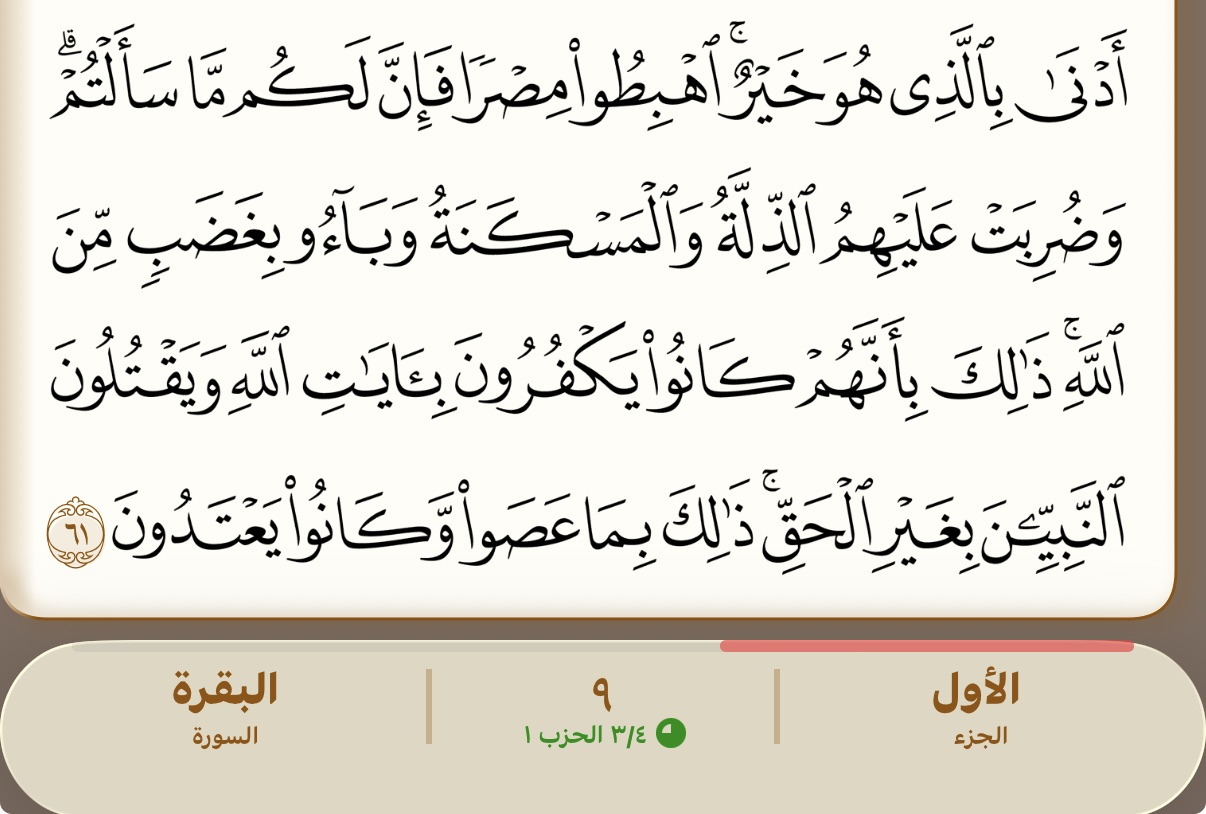 أَدْنَىٰ بِٱلَّذِى هُوَ خَيْرٌ ۚ ٱهْبِطُوا۟ مِصْرًا فَإِنَّ لَكُم مَّا سَأَلْتُمْ ۗ
وَضُرِبَتْ عَلَيْهِمُ ٱلذِّلَّةُ وَٱلْمَسْكَنَةُ وَبَآءُو بِغَضَبٍ مِّنَ
ٱللَّهِ ۚ ذَٰلِكَ بِأَنَّهُمْ كَانُوا۟ يَكْفُرُونَ بِـَٔايَـٰتِ ٱللَّهِ وَيَقْتُلُونَ
ٱلنَّبِيِّـۧنَ بِغَيْرِ ٱلْحَقِّ ۚ ذَٰلِكَ بِمَا عَصَوا۟ وَّكَانُوا۟ يَعْتَدُونَ ٦١
الأول ٩ البقرة
الجزء ٣/٤ الحزب ١ السورة